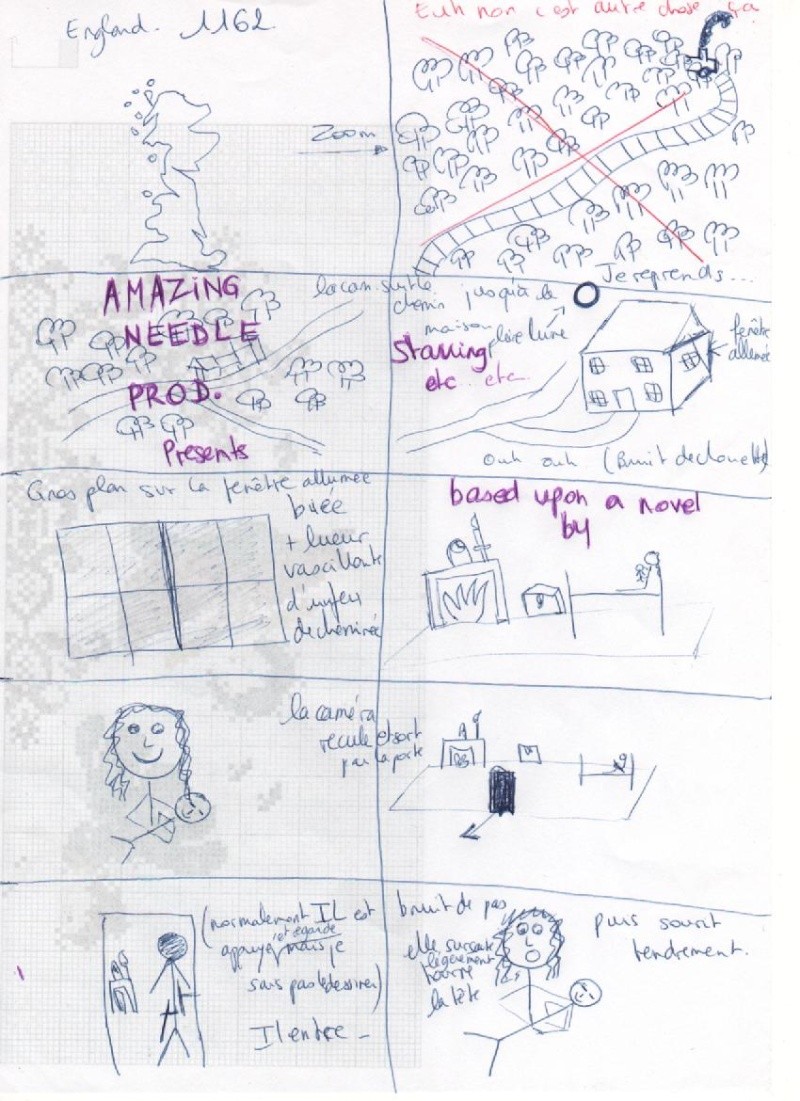 England. 1162.
Euh non c'est autre chose ça
Zoom
Je reprends...
AMAZiNG
NEEDLE
PROD.
Presents
la cam suit le
chemin jusqu'à la
maison
Starring
etc.. etc...
pleine lune
fenêtre
allumée
Ouh ouh. (Bruit de chouette)
Gros plan sur la fenêtre allumée
buée
+ lueur
vascillante
d'un feu
de cheminée
based upon a novel
by
la caméra
recule et sort
par la porte
(normalement IL est
appuyé et regarde mais je
sais pas le dessiner)
Il entre -
bruit de pas
elle sursaute
légèrement
tourne
la tête
puis sourit
tendrement.